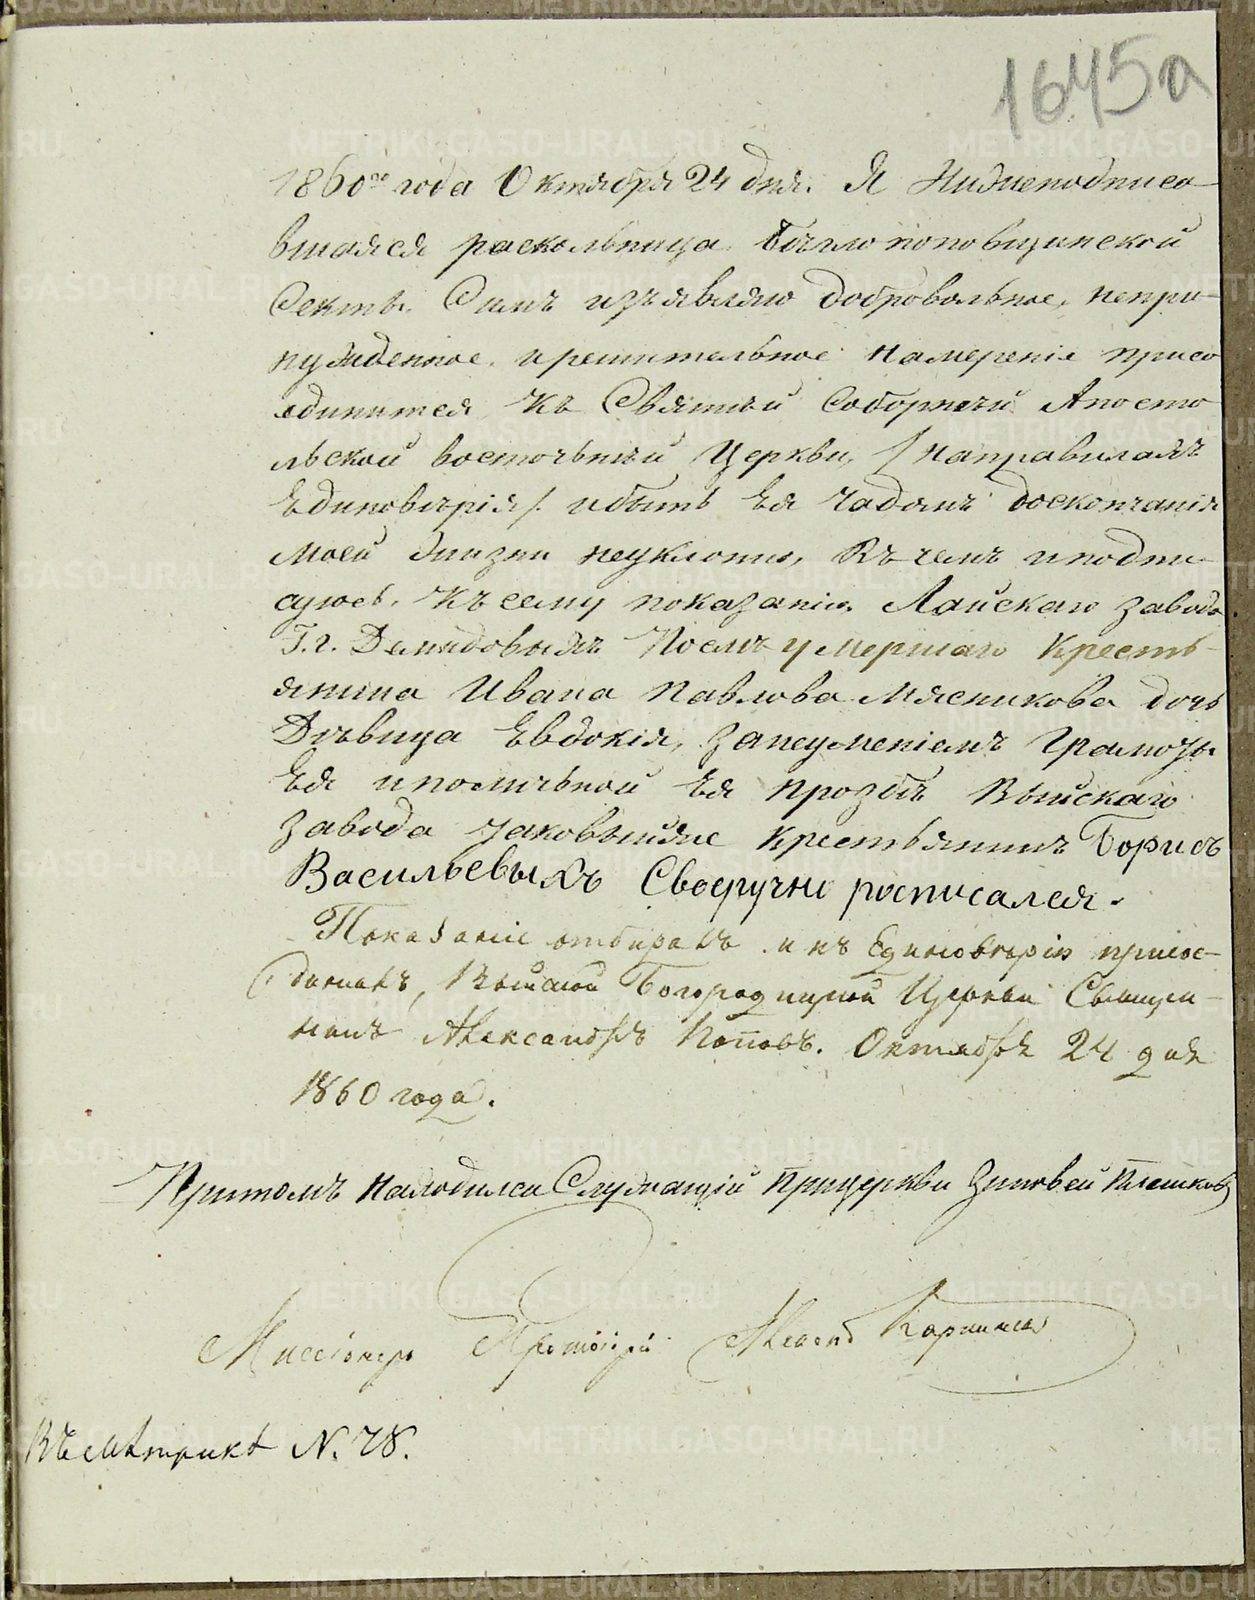 1645а
1860го года Октября 24 дня. Я Нижеподписа-
вшаяся раскольница Бѣглопоповщинской
Секты. Симъ изъявляю добровольное, непри-
нужденное, и решительное намеренiе присо
единится къ Святѣй Соборнѣй Апосто
льской восточьнѣй Церкви, /на правилахъ
Единоверiя/. и быть Ея чадомъ до скончанiя
моей жизни неуклонно, въ чемъ и подпи
суюсь. Къ сему показанiю Лайскаго завода
Г.г. Демидовыхъ После умершаго Кресть-
янина Ивана Павлова Мясникова дочь
Дѣвица Евдокiя, за неуменiемъ грамоты
Ея и по личьной Ея прозбѣ Выйскаго
завода таковыйже крестьянинъ Борисъ
Васильевыхъ Своеручно росписался.
Показанiе отбиралъ и къ Единоверiю присое-
динилъ, Выйской Богородицкой Церкви Священ-
никъ Александръ Поповъ. Октября 24 дня
1860 года.
При томъ находился Служащiй при церкви Зиновей Плешковъ
Миссiонеръ Протоiерей
Въ метрикѣ N. 28.